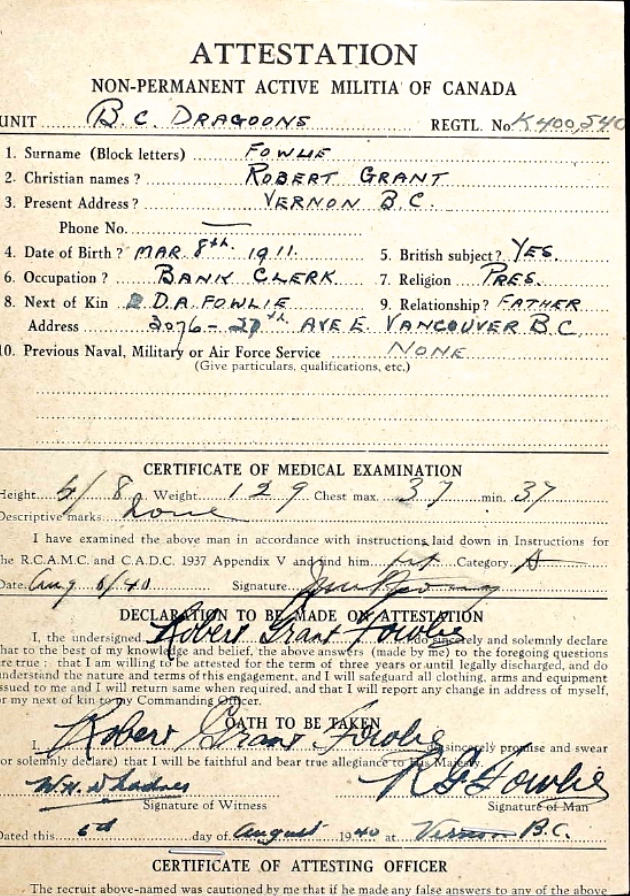 ATTESTATION
NON-PERMANENT ACTIVE MILITIA OF CANADA
UNIT B.C. DRAGOONS REGTL. No. K400,540
1. Surname (Block letters) FOWLIE
2. Christian names? ROBERT GRANT
3. Present Address? VERNON B.C.
Phone No. —
4. Date of Birth? MAR 8th 1911. 5. British subject? YES.
6. Occupation? BANK CLERK 7. Religion PRES.
8. Next of Kin D.A. FOWLIE 9. Relationship? FATHER
Address 3076 - 27th AVE E. VANCOUVER B.C.
10. Previous Naval, Military or Air Force Service NONE
(Give particulars, qualifications, etc.)
CERTIFICATE OF MEDICAL EXAMINATION
Height 5/8 Weight 129 Chest max. 37 min. 37
Descriptive marks none
I have examined the above man in accordance with instructions laid down in Instructions for
the R.C.A.M.C. and C.A.D.C. 1937 Appendix V and find him fit Category A
Date Aug 6/40 Signature
DECLARATION TO BE MADE ON ATTESTATION
I, the undersigned Robert Grant Fowlie do sincerely and solemnly declare
that to the best of my knowledge and belief, the above answers (made by me) to the foregoing questions
are true; that I am willing to be attested for the term of three years or until legally discharged, and do
understand the nature and terms of this engagement, and I will safeguard all clothing, arms and equipment
issued to me and I will return same when required, and that I will report any change in address of myself,
or my next of kin to my Commanding Officer.
OATH TO BE TAKEN
I, Robert Grant Fowlie do sincerely promise and swear
(or solemnly declare) that I will be faithful and bear true allegiance to His Majesty.
R G Fowlie
Signature of Witness Signature of Man
Dated this 6th day of August 1940 at Vernon B.C.
CERTIFICATE OF ATTESTING OFFICER
The recruit above-named was cautioned by me that if he made any false answers to any of the above